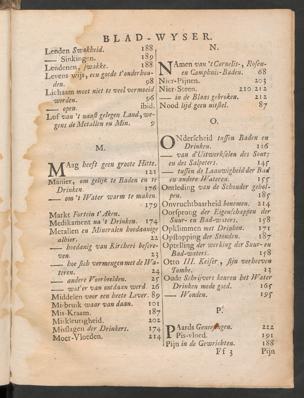 BLAD-WYSER.
Lenden Swakheid. 188
— Sinkingen. 189
Lendenen, swakke. 188
Levens wijs, een goede t'onderhouden. 98
Lichaam moet niet te veel vermoeid worden. 56
— open. ibid.
Lof van 't naast gelegen Land, wegens de Metallen en Min. 9
M.
MAag heeft geen groote Hitte. 121
Manier, om gelijk te Baden en te Drinken. 176
— om 't Water warm te maken. 179
Markt Fortein t'Aken.
Medikament na 't Drinken. 174
Metallen en Mineralen hoedanige alhier. 22
— hoedanig van Kircheri beschreven. 23
— hoe sich vermengen met de Wateren. 24
— andere Voorbeelden. 25
— wat'er van ontdaan werd. 26
Middelen voor een heete Lever. 89
Misbruik waar van daan. 101
Mis-Kraam. 187
Miskleurigheid. 202
Misslagen der Drinkers. 174
Moer-Vloeden. 214
N.
NAmen van 't Cornelis-, Rosen- en Camphuis-Baden. 68
Nier-Pijnen. 203
Nier-Steen. 210 212
— in de Blaas gebroken. 212
Nood lijd geen uitstel. 87
O.
ONderscheid tussen Baden en Drinken. 116
— van d'Uitwerkselen des Souts en des Salpeters. 145
— tussen de Laauwigheid der Baden andere Wateren. 155
Ontleding van de Schouder geholpen. 185
Onvruchtbaarheid benomen. 214
Oorsprong der Eigenschappen der Suur- en Bad-waters. 158
Opklimmen met Drinken. 171
Opstopping der Stonden. 187
Optelling der werking der Suur- en Bad-waters. 158
Otto III. Keiser, sijn verheeven Tombe. 13
Oude Schrijvers keuren het Water Drinken mede goed. 165
— Wonden. 195
P.
PAards 222
Pis-vloed. 191
Pijn in de Gewrichten. 188
Ff 3 Pijn